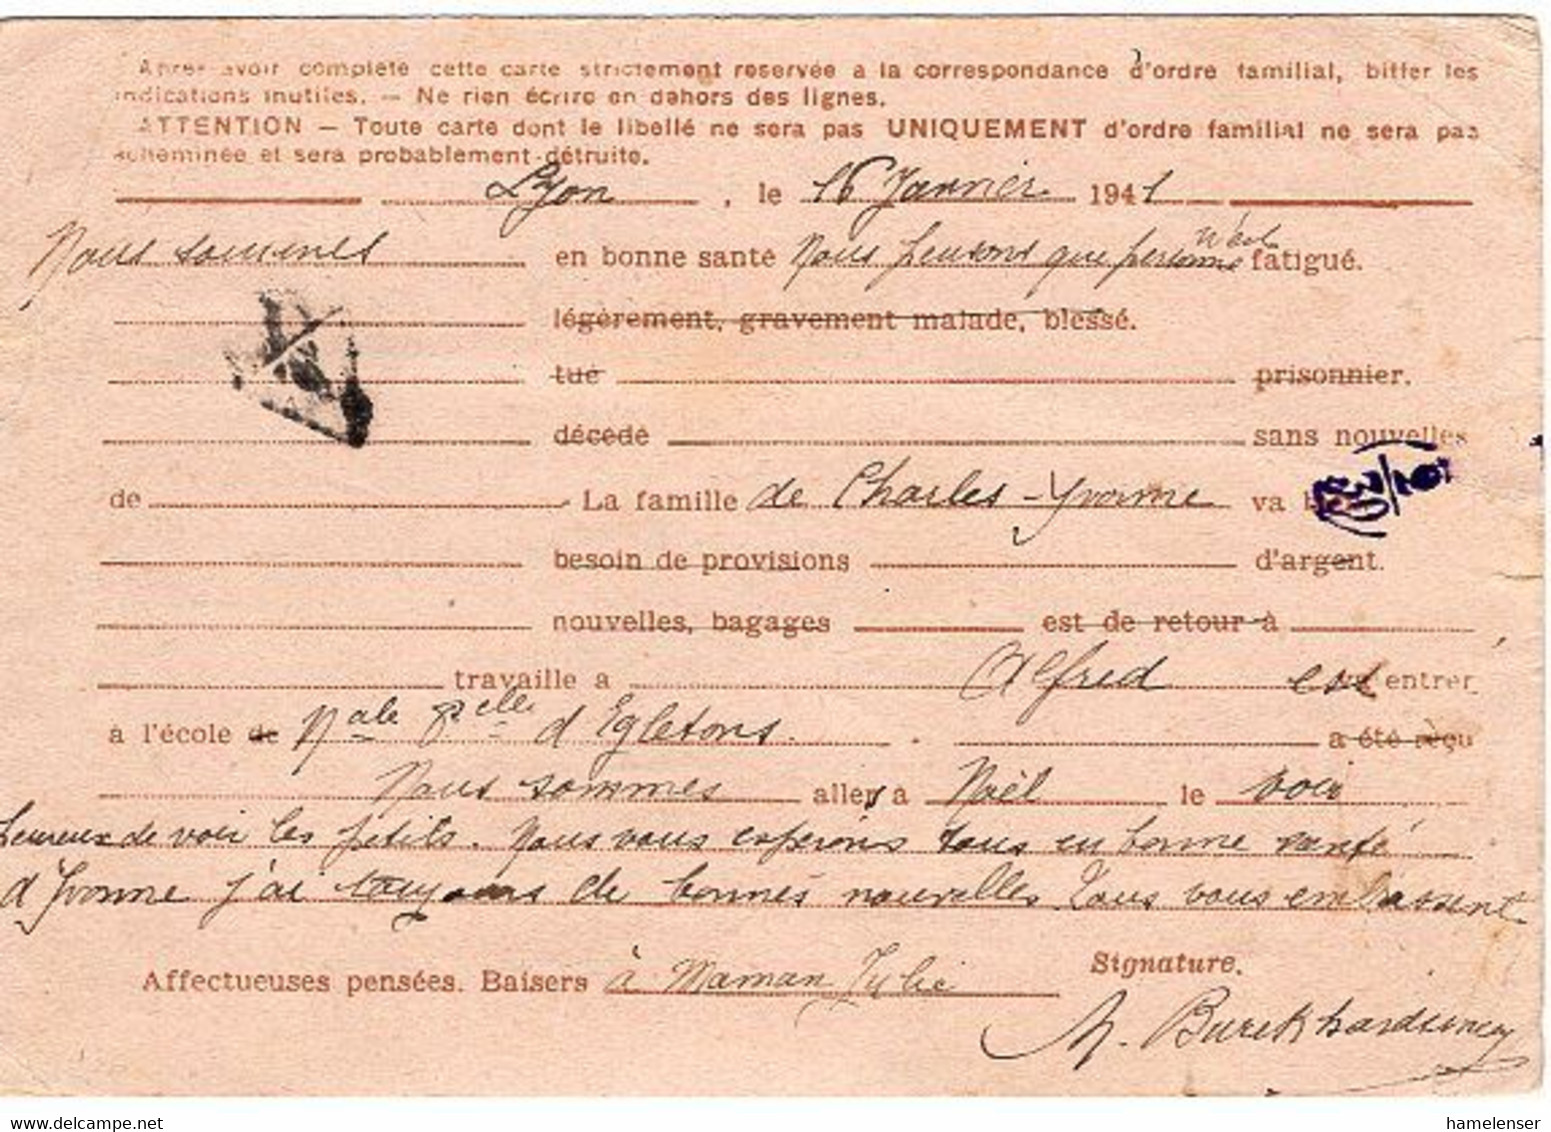 Après avoir complété cette carte strictement réservée à la correspondance d'ordre familial, biffer les
indications inutiles. — Ne rien écrire en dehors des lignes.
ATTENTION — Toute carte dont le libellé ne sera pas UNIQUEMENT d'ordre familial ne sera pas
acheminée et sera probablement détruite.
Lyon, le 16 Janvier 1941
Nous sommes en bonne santé Nous pensons que personne n'est fatigué.
légèrement, gravement malade, blessé.
tué prisonnier.
décédé sans nouvelles
de La famille de Charles-Yvonne va
besoin de provisions d'argent.
nouvelles, bagages est de retour à
travaille à Alfred est entrer
à l'école de Nale Pelle d'Egletons. a été reçu
Nous sommes aller à Noël le voir
heureux de voir les petits. Nous vous espérons tous en bonne santé
d'Yvonne j'ai toujours de bonnes nouvelles Tous vous embrassent
Affectueuses pensées. Baisers à Maman Julie Signature.
hamelenser
www.delcampe.net